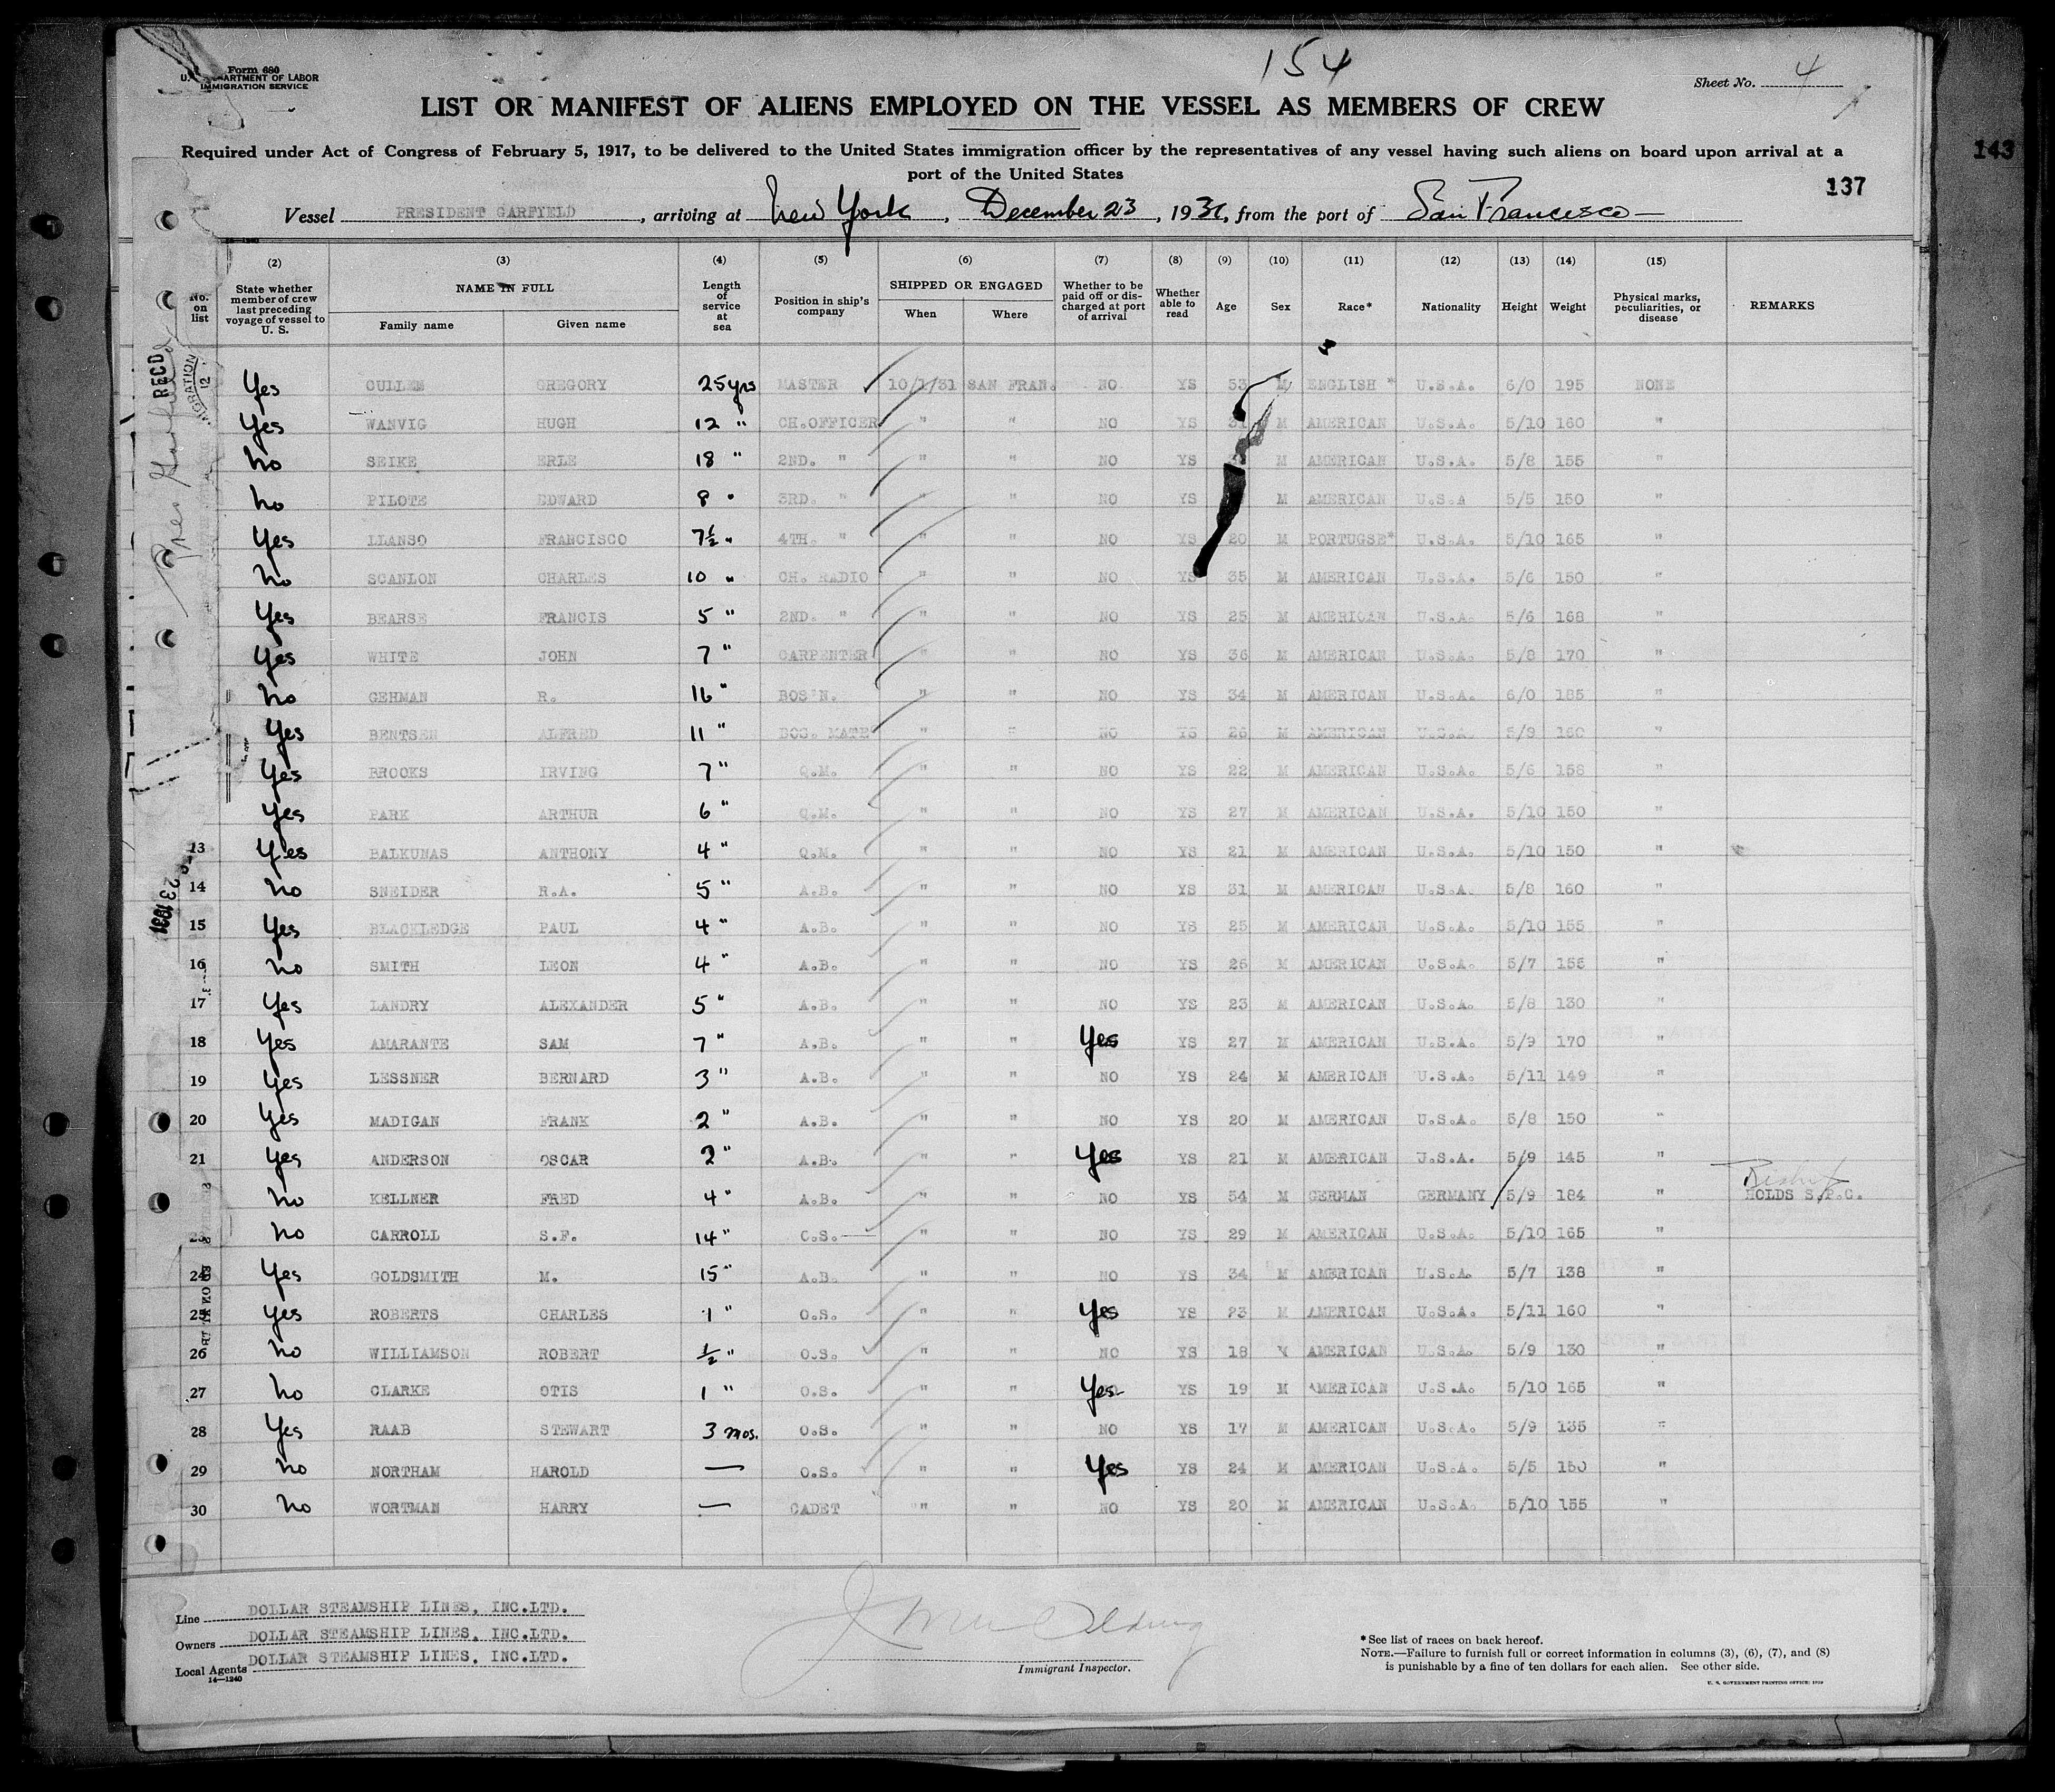 154
Form 680
U. S. DEPARTMENT OF LABOR
IMMIGRATION SERVICE
Sheet No. 4
LIST OR MANIFEST OF ALIENS EMPLOYED ON THE VESSEL AS MEMBERS OF CREW
143
Required under Act of Congress of February 5, 1917, to be delivered to the United States immigration officer by the representatives of any vessel having such aliens on board upon arrival at a
port of the United States
137
Vessel PRESIDENT GARFYELD, arriving at New York, December 23, 1931, from the port of San Francisco
(2) (3) (4) (5) (6) (7) (8) (9) (10) (11) (12) (13) (14) (15)
No. on list State whether member of crew last preceding voyage of vessel to U. S. NAME IN FULL Family name Given name Length of service at sea Position in ship's company SHIPPED OR ENGAGED When Where Whether to be paid off or discharged at port of arrival Whether able to read Age Sex Race* Nationality Height Weight Physical marks, peculiarities, or disease REMARKS
Yes CULLEN GREGORY 25 yrs MASTER 10/1/31 SAN FRAN. NO YS 53 M ENGLISH * U.S.A. 6/0 195 NONE
Yes WANVIG HUGH 12 " CH.OFFICER " " NO YS 31 M AMERICAN U.S.A. 5/10 160 "
No SEIKE ERLE 18 " 2ND. " " " NO YS M AMERICAN U.S.A. 5/8 155 "
No PILOTE EDWARD 8 " 3RD. " " " NO YS M AMERICAN U.S.A 5/5 150 "
Yes LLANSO FRANCISCO 7½ " 4TH. " " " NO YS 20 M PORTUGSE* U.S.A. 5/10 165 "
No SCANLON CHARLES 10 " CH. RADIO " " NO YS 35 M AMERICAN U.S.A. 5/6 150 "
Yes BEARSE FRANCIS 5 " 2ND. " " " NO YS 25 M AMERICAN U.S.A. 5/6 168 "
Yes WHITE JOHN 7 " CARPENTER " " NO YS 36 M AMERICAN U.S.A. 5/8 170 "
No GEHMAN R. 16 " BOS'N. " " NO YS 34 M AMERICAN U.S.A. 6/0 185 "
Yes BENTSEN ALFRED 11 " BOS. MATE " " NO YS 26 M AMERICAN U.S.A. 5/9 160 "
Yes BROOKS IRVING 7 " Q.M. " " NO YS 22 M AMERICAN U.S.A. 5/6 158 "
Yes PARK ARTHUR 6 " Q.M. " " NO YS 27 M AMERICAN U.S.A. 5/10 150 "
13 Yes BALKUNAS ANTHONY 4 " Q.M. " " NO YS 21 M AMERICAN U.S.A. 5/10 150 "
14 No SNEIDER R.A. 5 " A.B. " " NO YS 31 M AMERICAN U.S.A. 5/8 160 "
15 Yes BLACKLEDGE PAUL 4 " A.B. " " NO YS 25 M AMERICAN U.S.A. 5/10 155 "
16 No SMITH LEON 4 " A.B. " " NO YS 26 M AMERICAN U.S.A. 5/7 155 "
17 Yes LANDRY ALEXANDER 5 " A.B. " " NO YS 23 M AMERICAN U.S.A. 5/8 130 "
18 Yes AMARANTE SAM 7 " A.B. " " Yes YS 27 M AMERICAN U.S.A. 5/9 170 "
19 Yes LESSNER BERNARD 3 " A.B. " " NO YS 24 M AMERICAN U.S.A. 5/11 149 "
20 Yes MADIGAN FRANK 2 " A.B. " " NO YS 20 M AMERICAN U.S.A. 5/8 150 "
21 Yes ANDERSON OSCAR 2 " A.B. " " Yes YS 21 M AMERICAN U.S.A. 5/9 145 "
No KELLNER FRED 4 " A.B. " " NO YS 54 M GERMAN GERMANY 5/9 184 " HOLDS S.P.C.
23 No CARROLL S.F. 14 " O.S. " " NO YS 29 M AMERICAN U.S.A. 5/10 165 "
24 Yes GOLDSMITH M. 15 " A.B. " " NO YS 34 M AMERICAN U.S.A. 5/7 138 "
25 Yes ROBERTS CHARLES 1 " O.S. " " Yes YS 23 M AMERICAN U.S.A. 5/11 160 "
26 No WILLIAMSON ROBERT ½ " O.S. " " NO YS 18 M AMERICAN U.S.A. 5/9 130 "
27 No CLARKE OTIS 1 " O.S. " " Yes YS 19 M AMERICAN U.S.A. 5/10 165 "
28 Yes RAAB STEWART 3 mos. O.S. " " NO YS 17 M AMERICAN U.S.A. 5/9 135 "
29 No NORTHAM HAROLD — O.S. " " Yes YS 24 M AMERICAN U.S.A. 5/5 150 "
30 No WORTMAN HARRY — CADET " " NO YS 20 M AMERICAN U.S.A. 5/10 155 "
RECD
Pres Garfield
23 1931
Line DOLLAR STEAMSHIP LINES, INC.LTD.
Owners DOLLAR STEAMSHIP LINES, INC.LTD.
Local Agents DOLLAR STEAMSHIP LINES, INC.LTD.
14—1240
Immigrant Inspector.
*See list of races on back hereof.
NOTE.—Failure to furnish full or correct information in columns (3), (6), (7), and (8)
is punishable by a fine of ten dollars for each alien. See other side.
U. S. GOVERNMENT PRINTING OFFICE: 1930